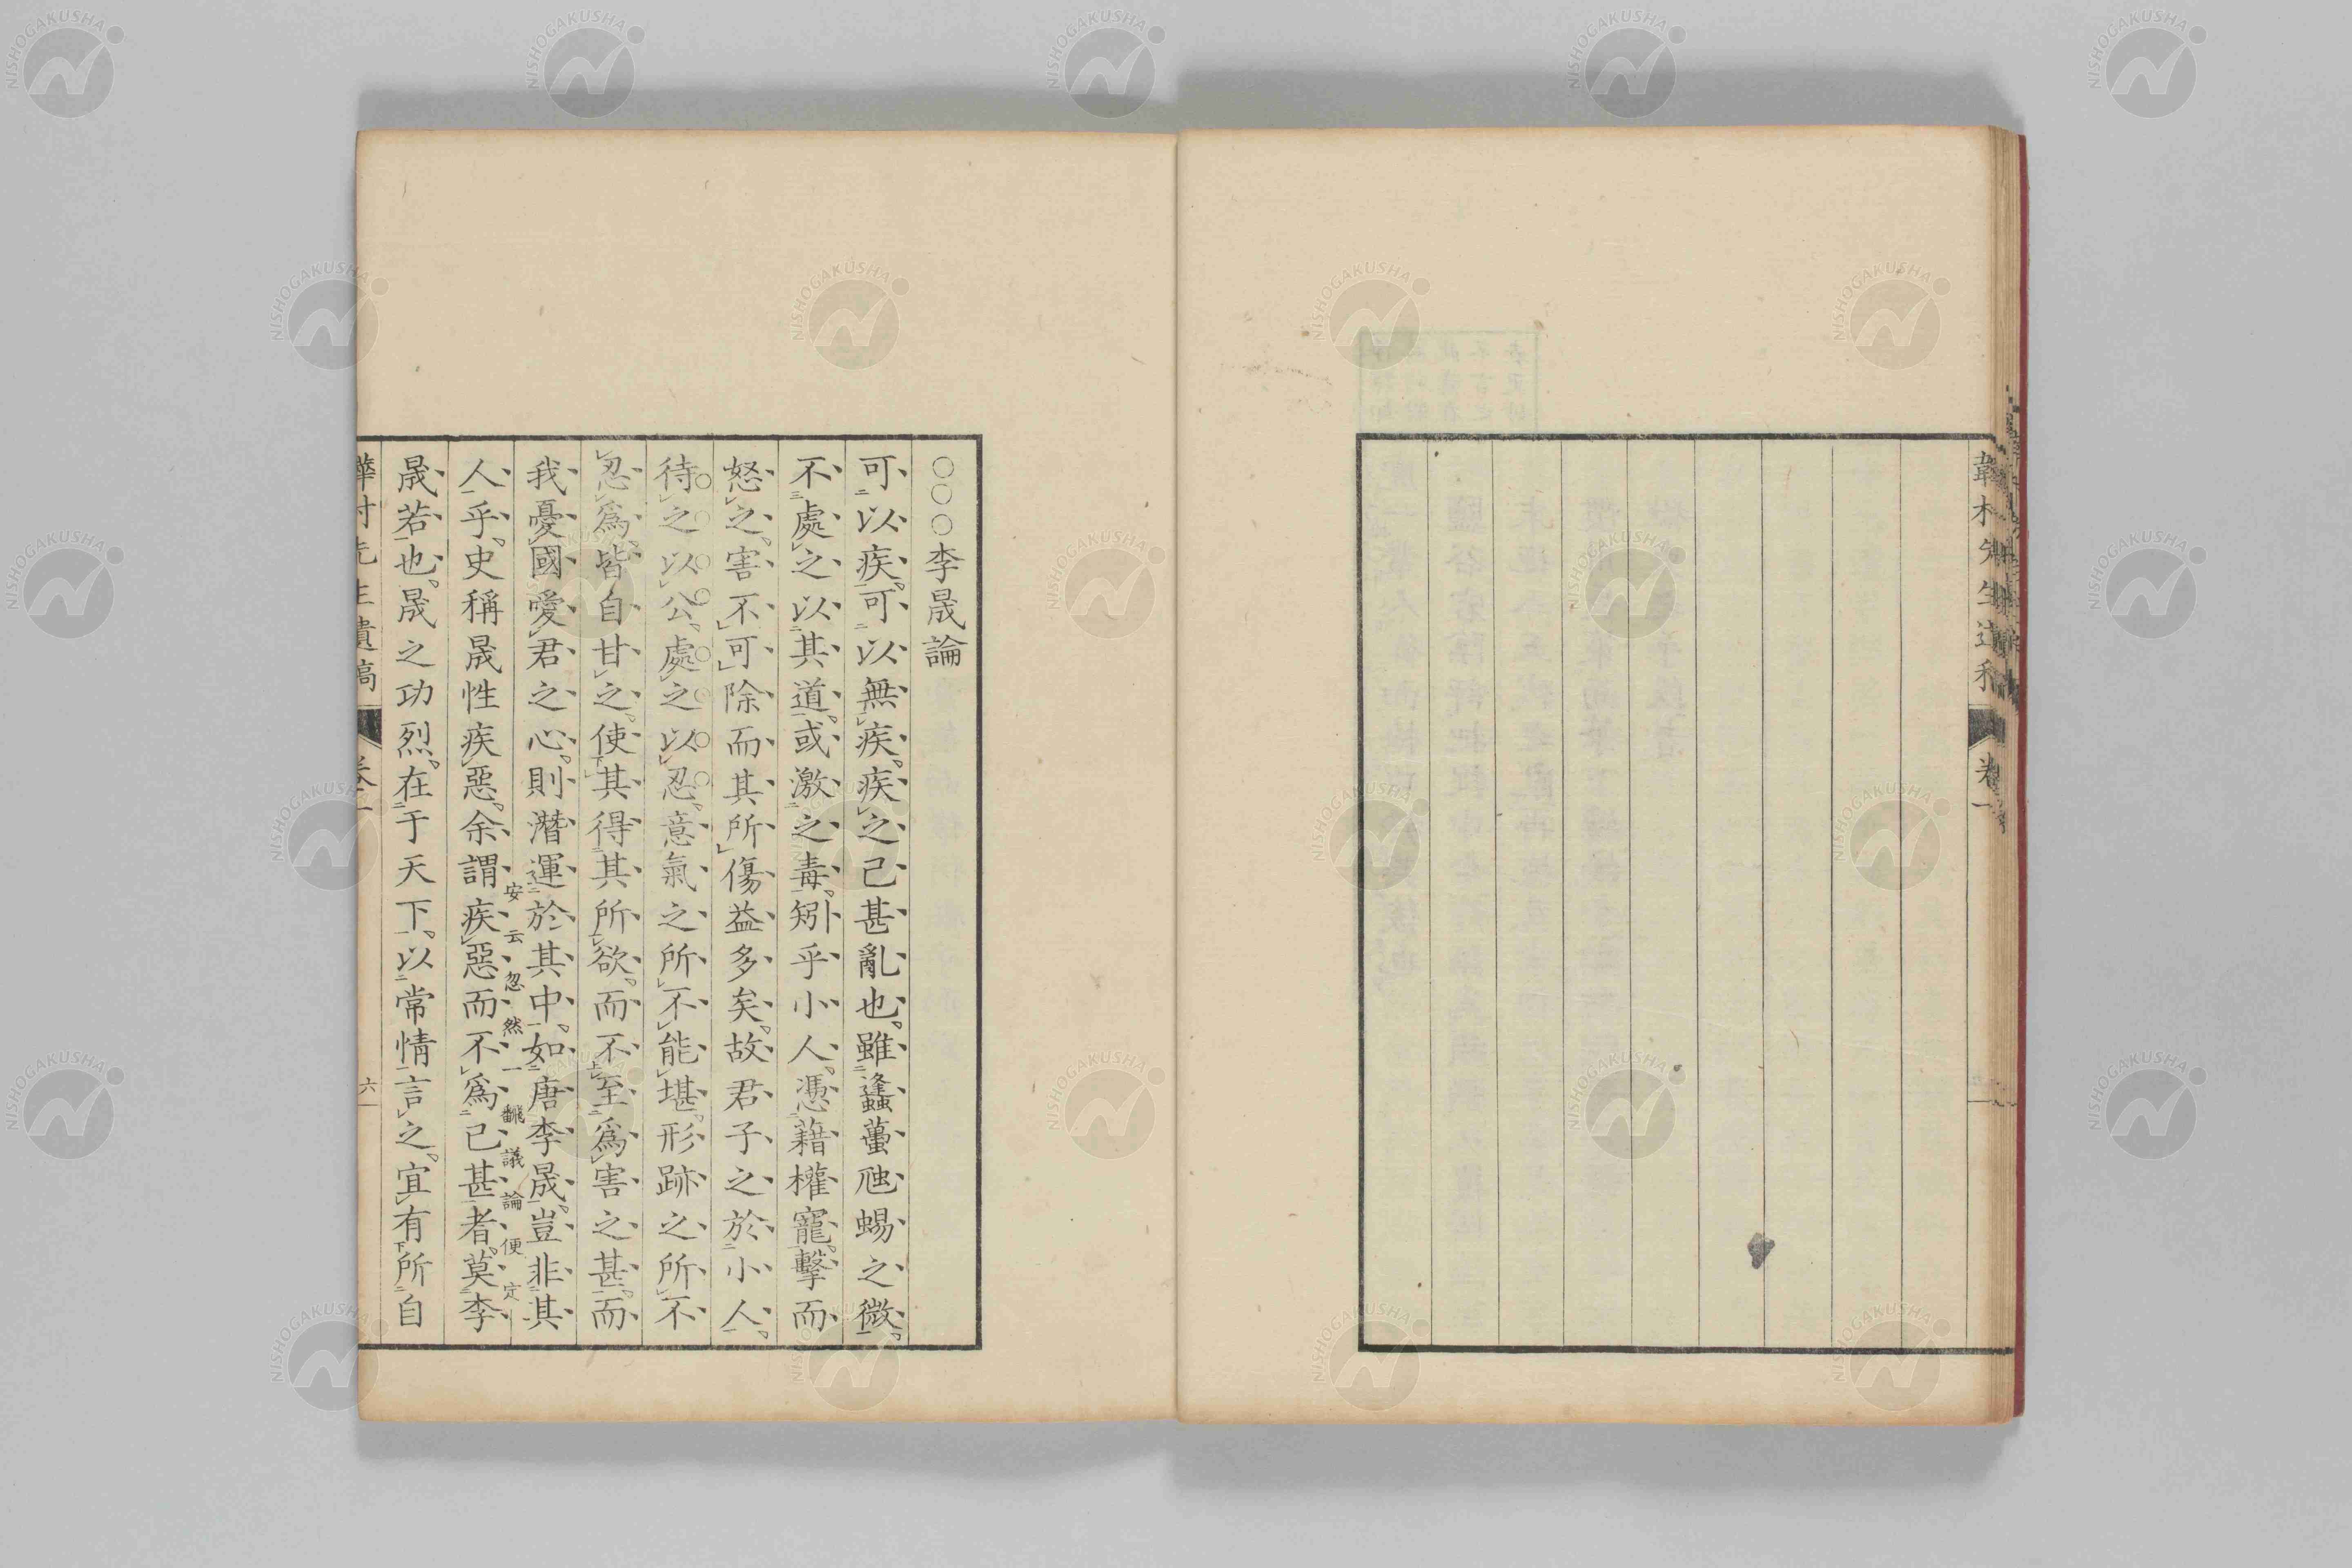 韡村先生遺稿 卷一
○○○李晟論
可以疾。可以無疾。疾之已甚亂也。雖蠭蠆虺蜴之微。
不處之以其道。或激之毒。矧乎小人。憑藉權寵。擊而
怒之。害不可除而其所傷益多矣。故君子之於小人。
待之以公。處之以忍。意氣之所不能堪。形跡之所不
忍爲。皆自甘之。使其得其所欲。而不至爲害之甚。而
我憂國愛君之心。則潛運於其中。如唐李晟。豈非其
安云忽然一飜議論便定
人乎。史稱晟性疾惡。余謂疾惡而不爲已甚者。莫李
晟若也。晟之功烈。在于天下。以常情言之。宜有所自
韡村先生遺稿 卷一 六